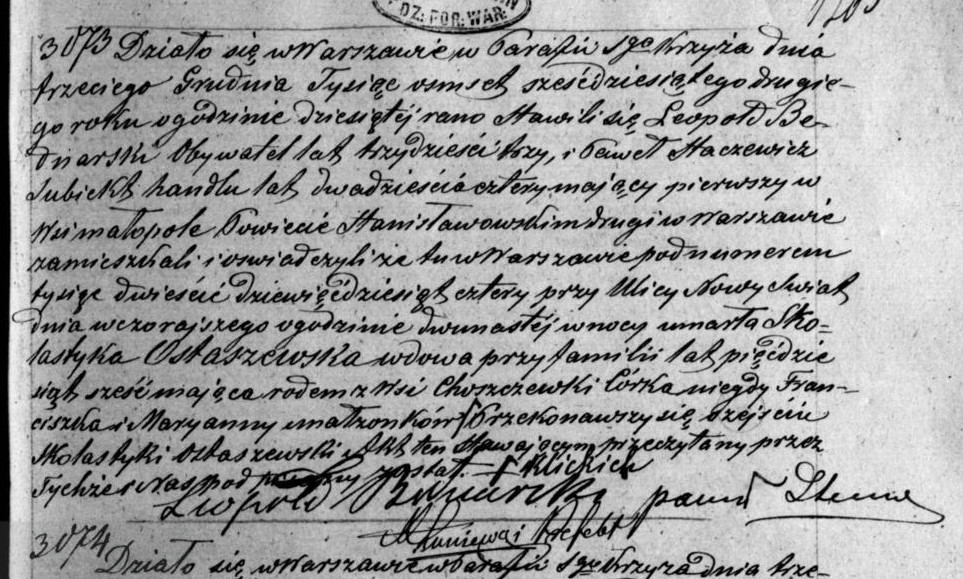 DZ: POR: WAR:
3073 Działo się w Warszawie w Parafii Sgo Krzyża dnia
trzeciego Grudnia Tysiąc osmset sześćdziesiątego drugie-
go roku o godzinie dziesiątéj rano Stawili się Leopold Be-
dnarski Obywatel lat trzydzieści trzy, i Paweł Staczewicz
Subiekt handlu lat dwadzieścia cztery mający pierwszy w
Wsi małopole Powiecie Stanisławowskim drugi w Warszawie
zamieszkali i oswiadczyli że tu w Warszawie pod numerem
tysiąc dwieście dziewięćdziesiąt cztery przy Ulicy Nowy Swiat
dnia wczorajszego o godzinie dwunastéj w nocy umarła Sko=
lastyka Ostaszewska wdowa przy familii lat pięćdzie
siąt sześć mająca rodem z Wsi Choszczewki Córka niegdy Fran-
ciszka i Maryanny małżonków Przekonawszy się o zejściu
Skolastyki Ostaszewski Akt ten Stawającym przeczytany przez
Tychże i Nas pod został. Klickich
Leopold Bednarski paweł
Prefekt
3074 Działo się w Warszawie w Parafii Sgo Krzyża dnia trze-